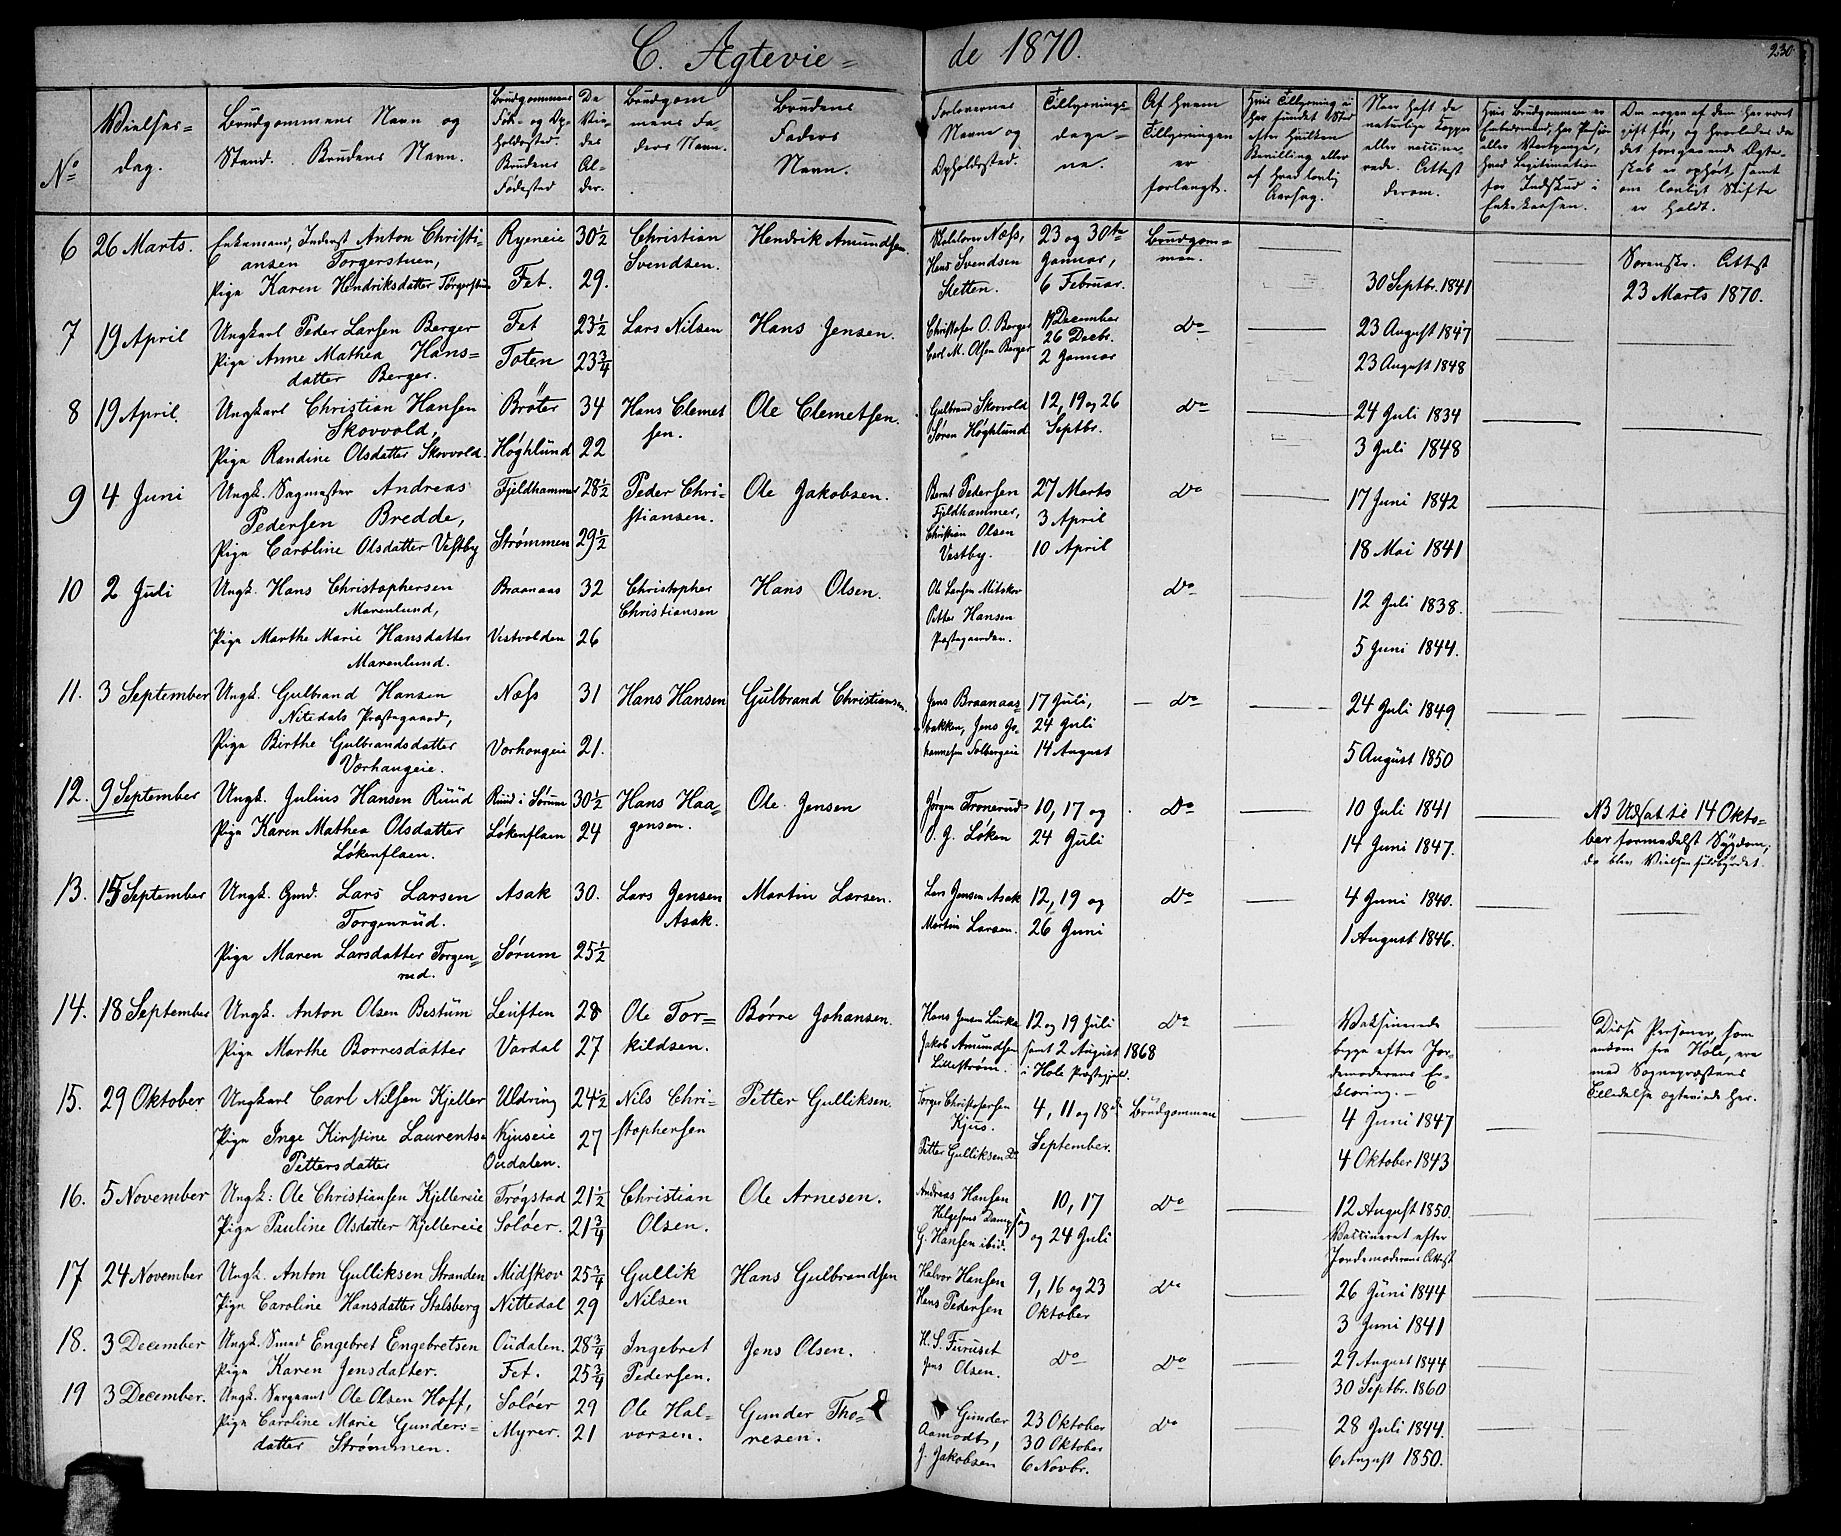 C. Ægtevie=
de 1870.
230
No
Vielses-
dag.
Brudgommens Navn og
Stand. Brudens Navn.
Brudgommens
Føde- og Op-
holdssted.
Brudens
Fødested
De
Vie-
des
Al-
der.
Brudgom
mens Fa-
ders Navn.
Brudens
Faders
Navn.
Forlovernes
Navne og
Opholdssted.
Tillysnings-
dage-
ne.
Af hvem
Tillysningen
er
forlangt.
6 26 Marts.
Enkemand, Inderst Anton Christi-
ansen Torgerstuen,
Pige Karen Hendriksdatter Torgerstuen
Ryeneie 30½
Fet. 29.
Christian
Svendsen.
Hendrik Amundsen
Næss,
Hans Svendsen
Sletten.
23 og 30te
Januar,
6 Februar.
Brudgom-
men.
30 Septbr. 1841
Sorenskr. Attest
23 Marts 1870.
7 19 April
Ungkarl Peder Larsen Berger
Pige Anne Mathea Hans-
datter Berger.
Fet 23½
Toten 23¾
Lars Nilsen
Hans Jensen.
Christofer O. Berger
Carl M. Olsen Berger
19 December
26 Decbr.
2 Januar
Do
23 August 1847
23 August 1848
8 19 April.
Ungkarl Christian Hansen
Skovvold,
Pige Randine Olsdatter Skovvold.
Brøter 34
Høghlund 22
Hans Clemet
sen.
Ole Clemetsen.
Gulbrand Skovvold
Søren Høghlund
12, 19 og 26
Septbr.
Do
24 Juli 1834
3 Juli 1848
9 4 Juni
Ungk. Sagmester Andreas
Pedersen Bredde,
Pige Caroline Olsdatter Vestby
Fjeldhammer 28½
Strømmen 29½
Peder Chri-
stiansen.
Ole Jakobsen.
Bernt Pedersen
Fjeldhammer,
Christian Olsen
Vestby.
27 Marts
3 April
10 April
Do
17 Juni 1842
18 Mai 1841
10 2 Juli
Ungk. Hans Christophersen
Marenlund,
Pige Marthe Marie Hansdatter
Marenlund.
Braanaas 32
Vestvolden 26
Christopher
Christiansen
Hans Olsen.
Ole Larsen Mitskov
Petter Hansen
Præstegaarden.
Do
12 Juli 1838.
5 Juni 1844.
11. 3 September
Ungk. Gulbrand Hansen
Nitedals Præstegaard,
Pige Birthe Gulbrandsdatter
Vorhaugeie.
Næss 31
Vorhaugeie 21.
Hans Hansen
Gulbrand Christiansen.
Jens Braanaas-
bakken, Jens Jo-
hannesen Solbergeie
17 Juli,
24 Juli
14 August
Do
24 Juli 1849
5 August 1850
12. 9 September
Ungk. Julius Hansen Ruud
Pige Karen Mathea Olsdatter
Løkenflaen.
Ruud i Sørum 30½
Løkenflaen 24
Hans Haa-
gensen.
Ole Jensen
Jørgen Tronerud
O. J. Løken
10, 17 og
24 Juli
Do
10 Juli 1841
14 Juni 1847.
NB Udsat til 14 Okto-
ber formedelst Sygdom,
da blev Vielsen fuldbyrdet.
13. 15 September
Ungk. Gmd. Lars Larsen
Torgenrud.
Pige Maren Larsdatter Torgen-
rud.
Asak 30.
Sørum 25½
Lars Jensen
Asak.
Martin Larsen.
Lars Jensen Asak
Martin Larsen.
12, 19 og
26 Juni
Do
4 Juni 1840.
1 August 1846.
14. 18 September
Ungk. Anton Olsen Bestum
Pige Marthe Børresdatter
Leiften 28
Vardal 27
Ole Tor-
kildsen.
Børre Johansen.
Hans Jensen
Jakob Amundsen
Lillestrøm.
12 og 19 Juli
samt 2 August 1868
i Hole Præstegjeld.
Do
Vaksinerede
begge efter Jor-
demoderens Er-
klæring.-
Disse Personer, som
ere
med Sognepræstens
Tilladelse ægteviede her.
15. 29 Oktober
Ungkarl Carl Nilsen Kjeller
Pige Inge Kirstine Laurents-
Pettersdatter
Uldring 24½
Kjuseie 27
Oudalen.
Nils Chri-
stophersen
Petter Gulliksen.
Torger Christofersen
Kjus.
Petter Gulliksen Do
4, 11 og 18de
September.
Brudgommen
4 Juni 1847
4 Oktober 1843
16. 5 November
Ungk: Ole Christiansen Kjellereie
Pige Pauline Olsdatter Kjellereie
Trøgstad 21½
Soløer. 21¾
Christian
Olsen.
Ole Arnesen.
Andreas Hansen
Helgesens Dampsag
G. Hansen ibid.
10, 17
og 24 Juli
Do
12 August 1850.
Vaccineret efter
Jordemoderens Attest
17 24 November
Ungk. Anton Gulliksen Stranden
Pige Caroline Hansdatter Stalsberg
Midskov 25¾
Nittedal 29
Gullik
Nilsen
Hans Gulbrandsen
Halvor Hansen
Hans Pedersen
9, 16 og 23
Oktober
Do
26 Juni 1844
3 Juni 1841
18. 3 December
Ungk. Smed Engebret Engebretsen
Pige Karen Jensdatter.
Oudalen. 28¾
Fet. 25¾
Ingebret
Pedersen.
Jens Olsen.
H. S. Furuset
Jens Olsen.
Do
Do
29 August 1844
30 Septbr. 1860
19 3 December.
Ungk. Sergeant Ole Olsen Hoff,
Pige Caroline Marie Gunders-
datter Strømmen.
Soløer 29
Myrer. 21
Ole Hal-
vorsen.
Gunder Tho-
resen.
Gunder
Aamodt,
J. Jakobsen
23 Oktober
30 Oktober
6 Novbr.
Do
28 Juli 1844.
6 August 1850.